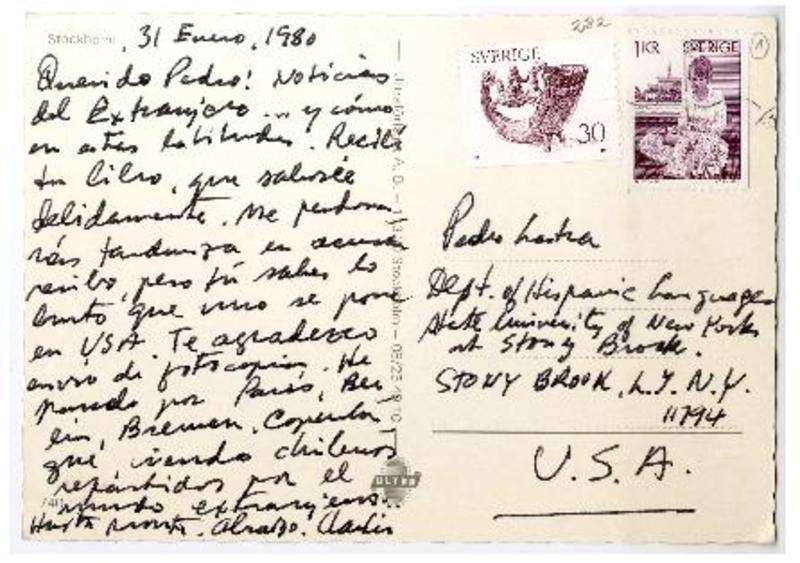 Stockholm, 31 Enero, 1980
Querido Pedro! Noticias
del Extranjero... y cómo
en estas latitudes. Recibí
tu libro, que saboreé
debidamente. Me perdona-
rás tardanza en acusar
recibo, pero tú sabes lo
lento que uno se pone
en USA. Te agradezco
envío de fotocopias. He
pasado por París, Ber
lín, Bremen, Copenha
gue, viendo chilenos
repartidos por el
mundo extranjero...
Hasta pronto. Abrazo.
282
SVERIGE
30
1KR SVERIGE
1
Pedro Lastra
Dept. of Hispanic Languages
State University of New York
at Stony Brook.
STONY BROOK, L.I. N.Y.
11794
U.S.A.
ULTRA